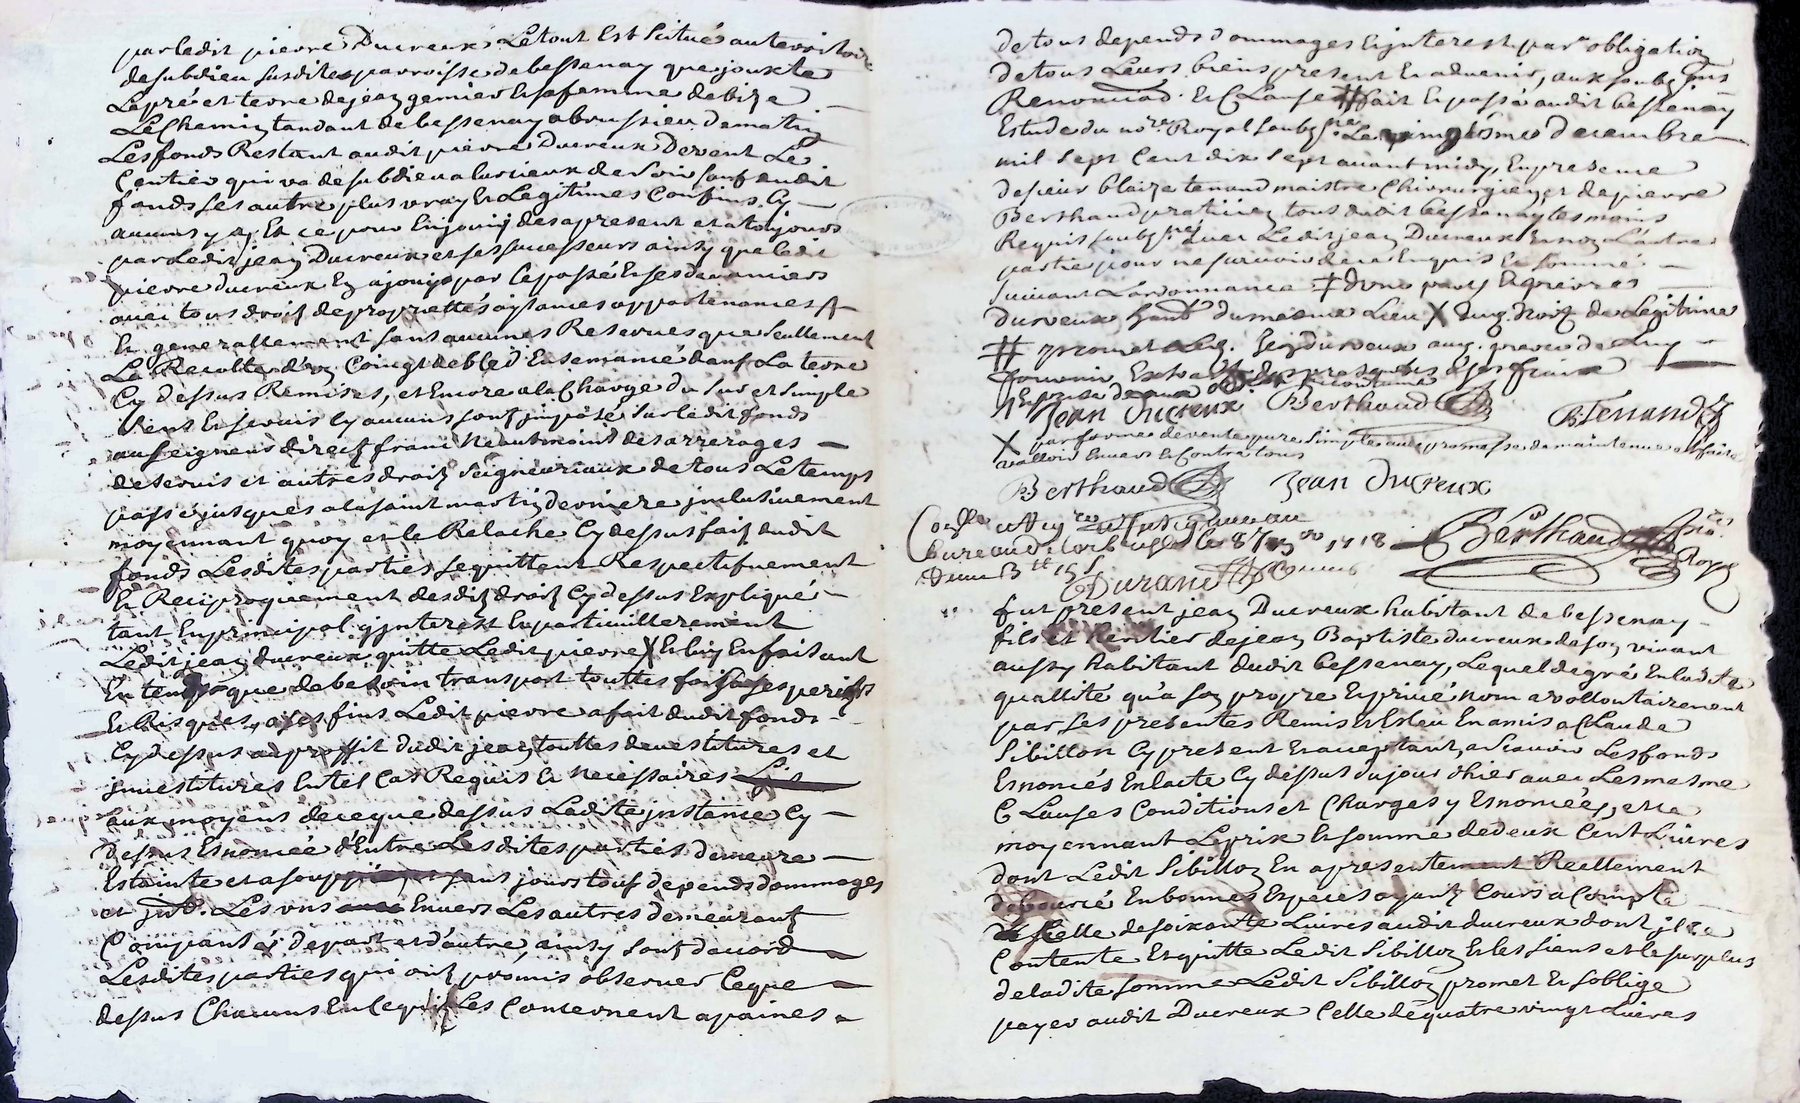 par ledit pierre Ducreux Letout Est Scitués au territoire
desubdieu susditte parroisse debessenay que jouxte
Le pré et terre dejean gernier Et safemme debize
Le Chemin tandant de bessenay abrussieu dematin
Lesfonds Restant audit pierre Ducreux Devent Le
Centier qui va desubdieu a desoir sauf dudit
fonds Ses autre plus vray Et Legitimes Confins Cy
aucuns y a Et ce pour Enjouir desapresent et a toujours
par Ledit jean Ducreux et ses successeurs ainsy que ledit
pierre ducreux En ajouy par Cepassé Et ses devanciers
avec tous droit deproprettés aysances appartenances
Et generallement sans aucunes Reserves que Seullement
La Recolte d'un Coing debled Ensemancé dans La terre
Cy dessus Remises, et Encore ala Charge du Sur et Simple
Cens Et servis Cy aucuns sont jmposé Sur ledit fonds
auseigneur direct franc Neantmoins des arrerages
deservis et autres droit Seigneuriaux detous Letemps
passé jusques alasaint martin derniere jnclusivement
moyennant quoy et le Relache Cy dessus fait dudit
fonds Lesdites parties sequittent Respectifvement
Et Reciproquement desdit droit Cy dessus Expliqués
tant Enprincipal qjnterest Enparticullierement
Ledit jean ducreux quitte Ledit pierre X Et luy Enfaisant
En tems que debesoin transport touttes fois ases perils
Et Risques, a ces fins Ledit pierre afait dudit fonds
Cy dessus au proffit dudit jean touttes devestitures et
jnvestitures En tel Cas Requis Et necessaires
aux moyens de ceque dessus Ladite jnstance Cy
dessus Enoncée d'Entre Les dites parties demeure
Estainte et asouppie tous depends dommages
et jnt. Les uns Envers Les autres demeurant
Compansés depart et d'autre, ainsy sont dacord
Lesdites parties qui ont promis observer Ceque
dessus Chacuns En Cequi Les Concernent apaines
detous depends dommages Et jnterest par obligation
detous Leurs biens present Et advenir, aux soubz
Renonciaõ. Et Clause # fait Et passé audit bessenay
Estude du no.re Royal soubz.né Le vingtiesme decembre
mil Sept Cent dix Sept avant midy, En presence
desieur blaize tenand maistre Chirurgien, et depierre
Berthaud praticien tous dudit bessenay tesmoins
Requis soubz.nés avec Ledit jean Ducreux Et non L'autre
partie pour ne sçavoir dece Enquis Et Sommé
Suivant Lordonnance
ducreux habt dumesme Lieu X droit de Legitime
# promet Led. jean ducreux aug. pierre de Luy
fournir Extrait des presentes a ses fraix
Jean Ducreux Berthaud BTenand
X par forme devente pure Simple avec promesse demaintenue et faire
valloir Envers Et Contre tous
Berthaud Jean Ducreux
1718 Berthaud
Royal
Durand
fut present jean Ducreux habitant debessenay
fils et heritier dejean Baptiste ducreux deson vivant
aussy habitant dudit bessenay, Lequel degré Enladite
quallité qu'a son propre Et privé nom a vollontairement
par Les presentes Remis Et Esleu En amis a Claude
Sibillon Cy present Et acceptant, a Scavoir Lesfonds
Enoncés Enlacte Cy dessus dujour d'hier avec Lesmesme
Clauses Conditions et Charges y Enoncées, et ce
moyennant Le prix Et somme dedeux Cent Livres
dont Ledit Sibillon En a presentement Reellement
deboursé Enbonnes Especes ayant Cours a Compte
Celle desoixante Livres audit ducreux dont jl se
Contente Et quitte Ledit Sibillon Et les Siens et lesurplus
deladite somme Ledit Sibillon promet Et soblige
payer audit Ducreux Celle dequatre vingt Livres